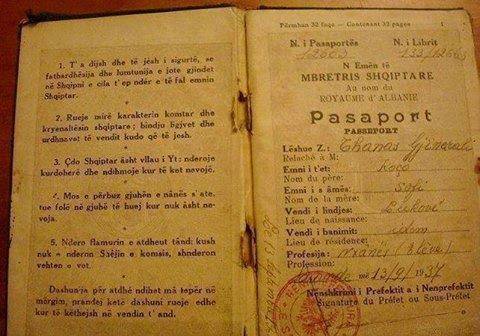 1. T'a dijsh dhe të jësh i sigurtë, se
fatbardhësija dhe lumtunija e jote gjindet
në Shqipni e cila t'ep ndër e të fal emnin
Shqiptar.
2. Rueje mirë karakterin komtar dhe
kryenaltësin shqiptare; bindju ligjvet dhe
urdhnavet të vendit kudo që të jesh.
3. Çdo Shqiptar âsht vllau i Yt: nderoje
kurdoherë dhe ndihmoje kur të ket nevojë.
4. Mos e përbuz gjuhën e nânës s'ate,
tue folë në gjuhë të huej kur nuk âsht ne-
voja.
5. Ndero flamurin e atdheut tând: kush
nuk e nderon Shêjin e komsis, shnderon
vehten e vet.
Dashunja për atdhé ndihet má tepër në
mërgim, prandej ketë dashuni rueje edhe
kur të këthejsh në vendin t'and.
Përmban 32 faqe — Contenant 32 pages
1
N. i Pasaportës
N. i Librit
12603
N Emën të
MBRETRIS SHQIPTARE
Au nom du
ROYAUME d'ALBANIE
Pasaport
PASSEPORT
Lëshue Z.: Thanas
Relaché à M:
Emni i t'et: Koço
Nom du père:
Emni i s âmës: Sofi
Nom de la mère:
Vendi i lindjes: Leskovë
Lieu de naissance:
Vendi i banimit:
Lieu de résidence:
Profesija: Nxanës (Elève)
Profession:
12/9/1937
Nënshkrimi i Prefektit a i Nenprefektit
Signature du Préfet ou Sous-Préfet